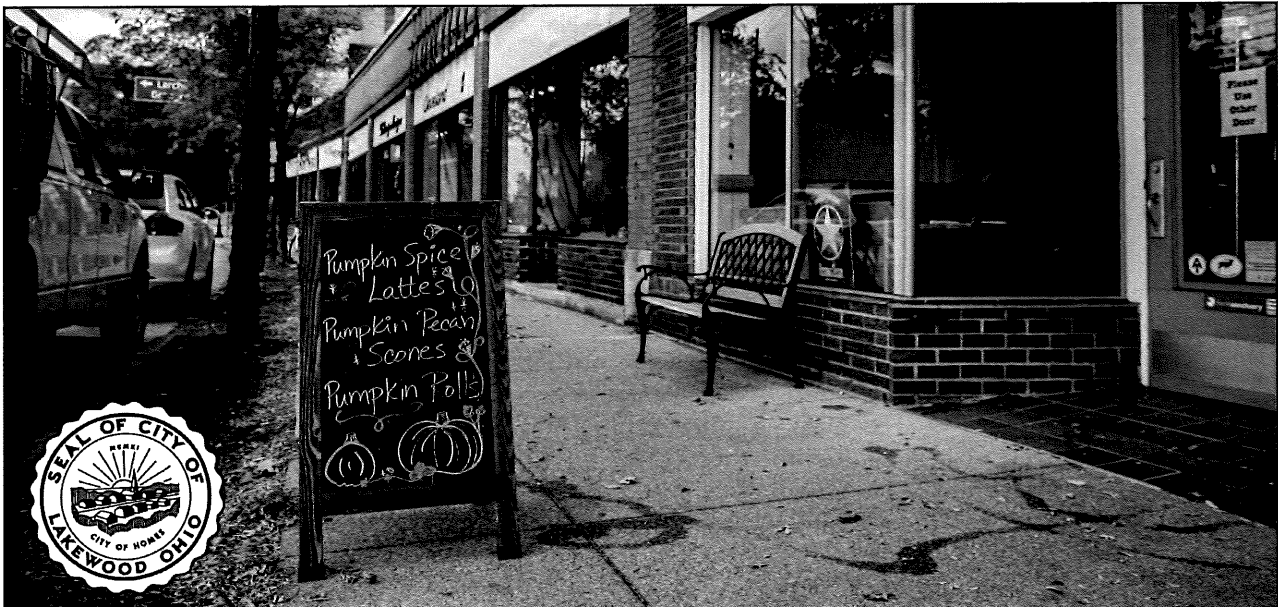 ← Larch
Please
Use
Other
Door
Pumpkin Spice
Lattes
Pumpkin Pecan
Scones
Pumpkin Polls
SEAL OF CITY OF
LAKEWOOD OHIO
MCMXI
CITY OF HOMES